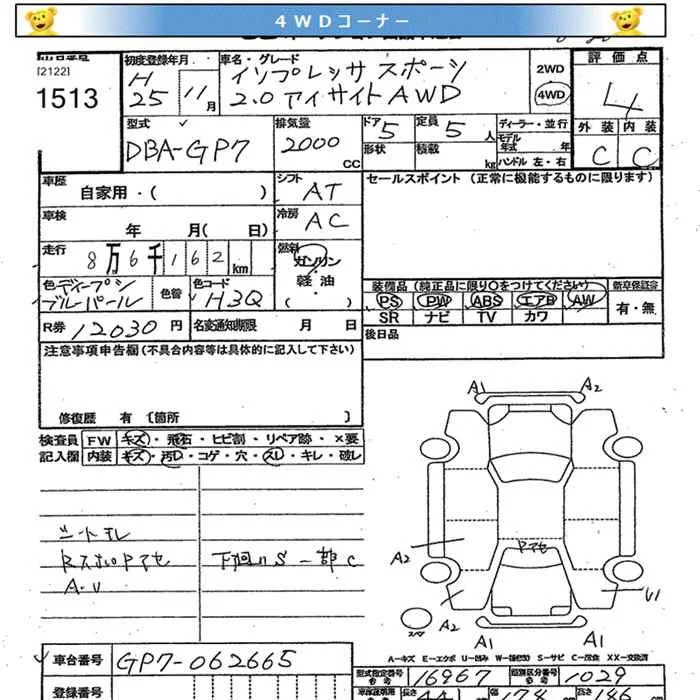 4WDコーナー
[2122]
1513
初度登録年月 車名・グレード
H 25 11月
インプレッサ スポーツ
2.0 アイサイト AWD
2WD
4WD
評価点
4
外装 内装
C C
型式
DBA-GP7
排気量
2000 CC
ドア 5
定員 5 人
形状 積載 kg
ディーラー・並行
モデル年式 年
ハンドル 左・右
車歴
自家用・( )
シフト AT
セールスポイント (正常に機能するものに限ります)
車検
年 月( 日)
冷房 AC
走行
8万6千162km
燃料
ガソリン
軽油
( )
色 ディープシ
ブルーパール
色替
色コード
H3Q
装備品 (純正品に限り○をつけてください)
新車保証書
PS PW ABS エアB AW
SR ナビ TV カワ
有・無
R券 12030 円
名変通知期限 月 日
後日品
注意事項申告欄 (不具合内容等は具体的に記入して下さい)
修復歴 有 〔箇所 〕
検査員
記入欄
FW キズ・飛石・ヒビ割・リペア跡・×要
内装 キズ・汚レ・コゲ・穴・スレ・キレ・破レ
A1 A2
シートスレ
A・U
下廻りS 一部C
A2
ヤマセ
A2
U1
A1 A1
A-キズ E-エクボ U-凹み S-サビ C-腐食 XX-交換済
車台番号 GP7-062665
型式指定番号
参考
16967
類別区分番号
参考
1029
登録番号
長さ
幅
高さ